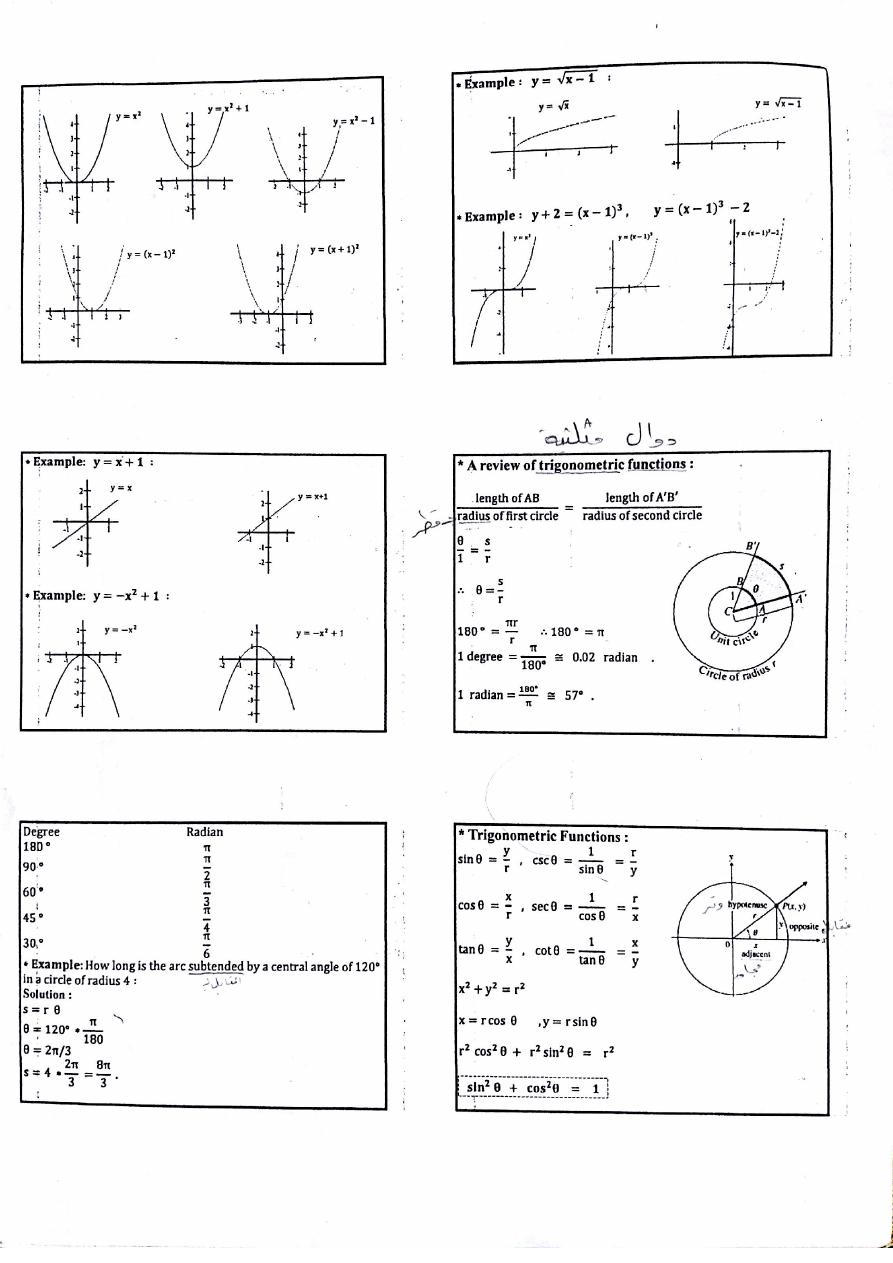 y = x²
y = x² + 1
y = x² − 1
y = (x − 1)²
y = (x + 1)²
* Example : y = √(x − 1) :
y = √x
y = √(x − 1)
* Example : y + 2 = (x − 1)³ , y = (x − 1)³ − 2
y = x³
y = (x − 1)³
y = (x − 1)³ − 2
* Example: y = x + 1 :
y = x
y = x+1
* Example: y = −x² + 1 :
y = −x²
y = −x² + 1
دوال مثلثية
* A review of trigonometric functions :
length of AB / radius of first circle = length of A′B′ / radius of second circle
θ/1 = s/r
∴ θ = s/r
180° = πr/r ∴ 180° = π
1 degree = π/180° ≅ 0.02 radian .
1 radian = 180°/π ≅ 57° .
B′
s
B
θ
1
C
A
A′
r
Unit circle
Circle of radius r
Degree Radian
180° π
90° π/2
60° π/3
45° π/4
30° π/6
* Example: How long is the arc subtended by a central angle of 120°
in a circle of radius 4 :
Solution :
s = r θ
θ = 120° * π/180
θ = 2π/3
s = 4 * 2π/3 = 8π/3 .
* Trigonometric Functions :
sin θ = y/r , csc θ = 1/sin θ = r/y
cos θ = x/r , sec θ = 1/cos θ = r/x
tan θ = y/x , cot θ = 1/tan θ = x/y
x² + y² = r²
x = r cos θ , y = r sin θ
r² cos² θ + r² sin² θ = r²
sin² θ + cos² θ = 1
y
وتر hypotenuse P(x, y)
r
y opposite
θ
0 x
adjacent